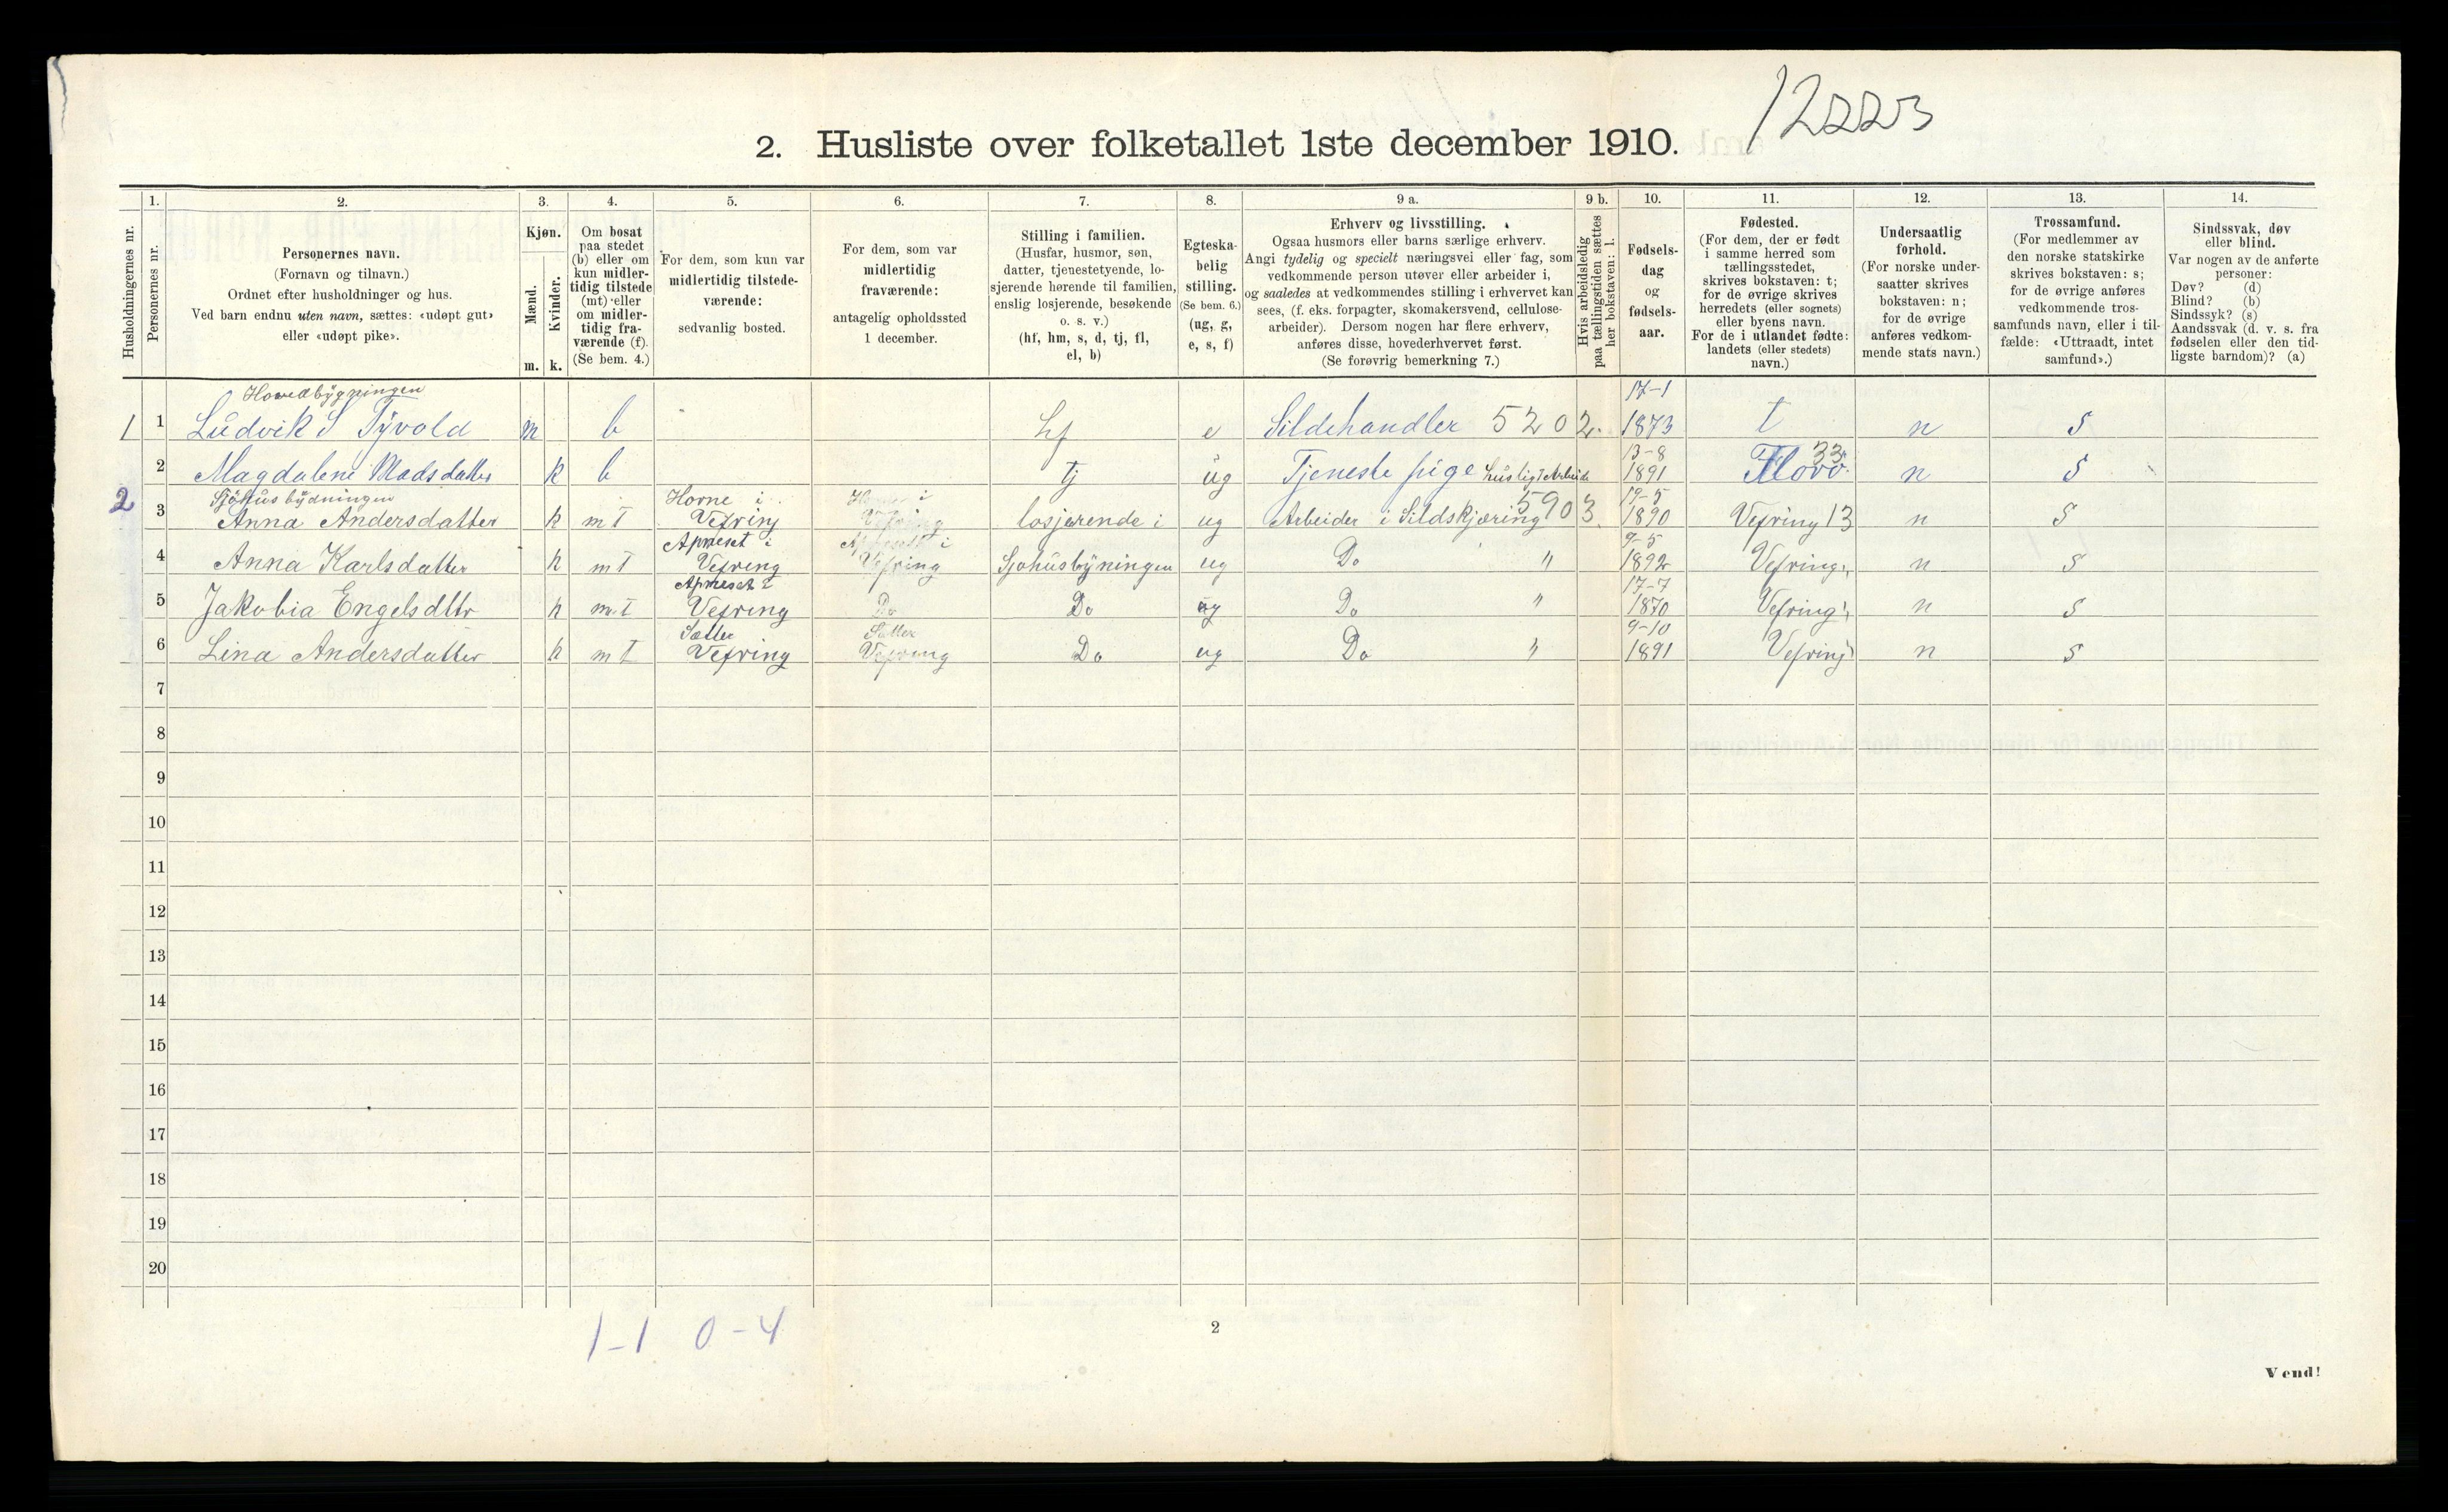 12223
2. Husliste over folketallet 1ste december 1910.
Husholdningernes nr.
1.
Personernes nr.
2.
Personernes navn.
(Fornavn og tilnavn.)
Ordnet efter husholdninger og hus.
Ved barn endnu uten navn, sættes: «udøpt gut»
eller «udøpt pike».
3.
Kjøn.
Mænd.
Kvinder.
m. k.
4.
Om bosat
paa stedet
(b) eller om
kun midler-
tidig tilstede
(mt) eller
om midler-
tidig fra-
værende (f).
(Se bem. 4.)
5.
For dem, som kun var
midlertidig tilstede-
værende:
sedvanlig bosted.
6.
For dem, som var
midlertidig
fraværende:
antagelig opholdssted
1 december.
7.
Stilling i familien.
(Husfar, husmor, søn,
datter, tjenestetyende, lo-
sjerende hørende til familien,
enslig losjerende, besøkende
o. s. v.)
(hf, hm, s, d, tj, fl,
el, b)
8.
Egteska-
belig
stilling.
(Se bem. 6.)
(ug, g,
e, s, f)
9 a.
Erhverv og livsstilling.
Ogsaa husmors eller barns særlige erhverv.
Angi tydelig og specielt næringsvei eller fag, som
vedkommende person utøver eller arbeider i,
og saaledes at vedkommendes stilling i erhvervet kan
sees, (f. eks. forpagter, skomakersvend, cellulose-
arbeider). Dersom nogen har flere erhverv,
anføres disse, hovederhvervet først.
(Se forøvrig bemerkning 7.)
9 b.
Hvis arbeidsledig
paa tællingstiden sættes
her bokstaven: l.
10.
Fødsels-
dag
og
fødsels-
aar.
11.
Fødested.
(For dem, der er født
i samme herred som
tællingsstedet,
skrives bokstaven: t;
for de øvrige skrives
herredets (eller sognets)
eller byens navn.
For de i utlandet fødte:
landets (eller stedets)
navn.)
12.
Undersaatlig
forhold.
(For norske under-
saatter skrives
bokstaven: n;
for de øvrige
anføres vedkom-
mende stats navn.)
13.
Trossamfund.
(For medlemmer av
den norske statskirke
skrives bokstaven: s;
for de øvrige anføres
vedkommende tros-
samfunds navn, eller i til-
fælde: «Uttraadt, intet
samfund».)
14.
Sindssvak, døv
eller blind.
Var nogen av de anførte
personer:
Døv? (d)
Blind? (b)
Sindssyk? (s)
Aandssvak (d. v. s. fra
fødselen eller den tid-
ligste barndom)? (a)
Hovedbygningen 17-1
1 1 Ludvik S Tyvold m b hf e Sildehandler 5202. 1873 t n S
13-8 33
2 Magdalene Madsdatter k b tj ug Tjeneste pige husligt Arbeide 1891 Florö n S
2 Sjøhusbydningen Horne i 19-5
3 Anna Andersdatter k mt Vefring Vefring losjerende i ug Arbeider i Sildskjæring 5903. 1890 Vefring 13 n S
Apneset i 9-5
4 Anna Karlsdatter k mt Vefreng Vefring Sjøhusbyningen ug Do " 1892 Vefring n S
Apneset i 17-7
5 Jakobia Engelsdttr k mt Vefring Do Do ug Do " 1870 Vefring n S
Sætter Sætter 9-10
6 Lina Andersdatter k mt Vefring Vefring Do ug Do " 1891 Vefring n S
7
8
9
10
11
12
13
14
15
16
17
18
19
20
1-1 0-4
2
Vend!